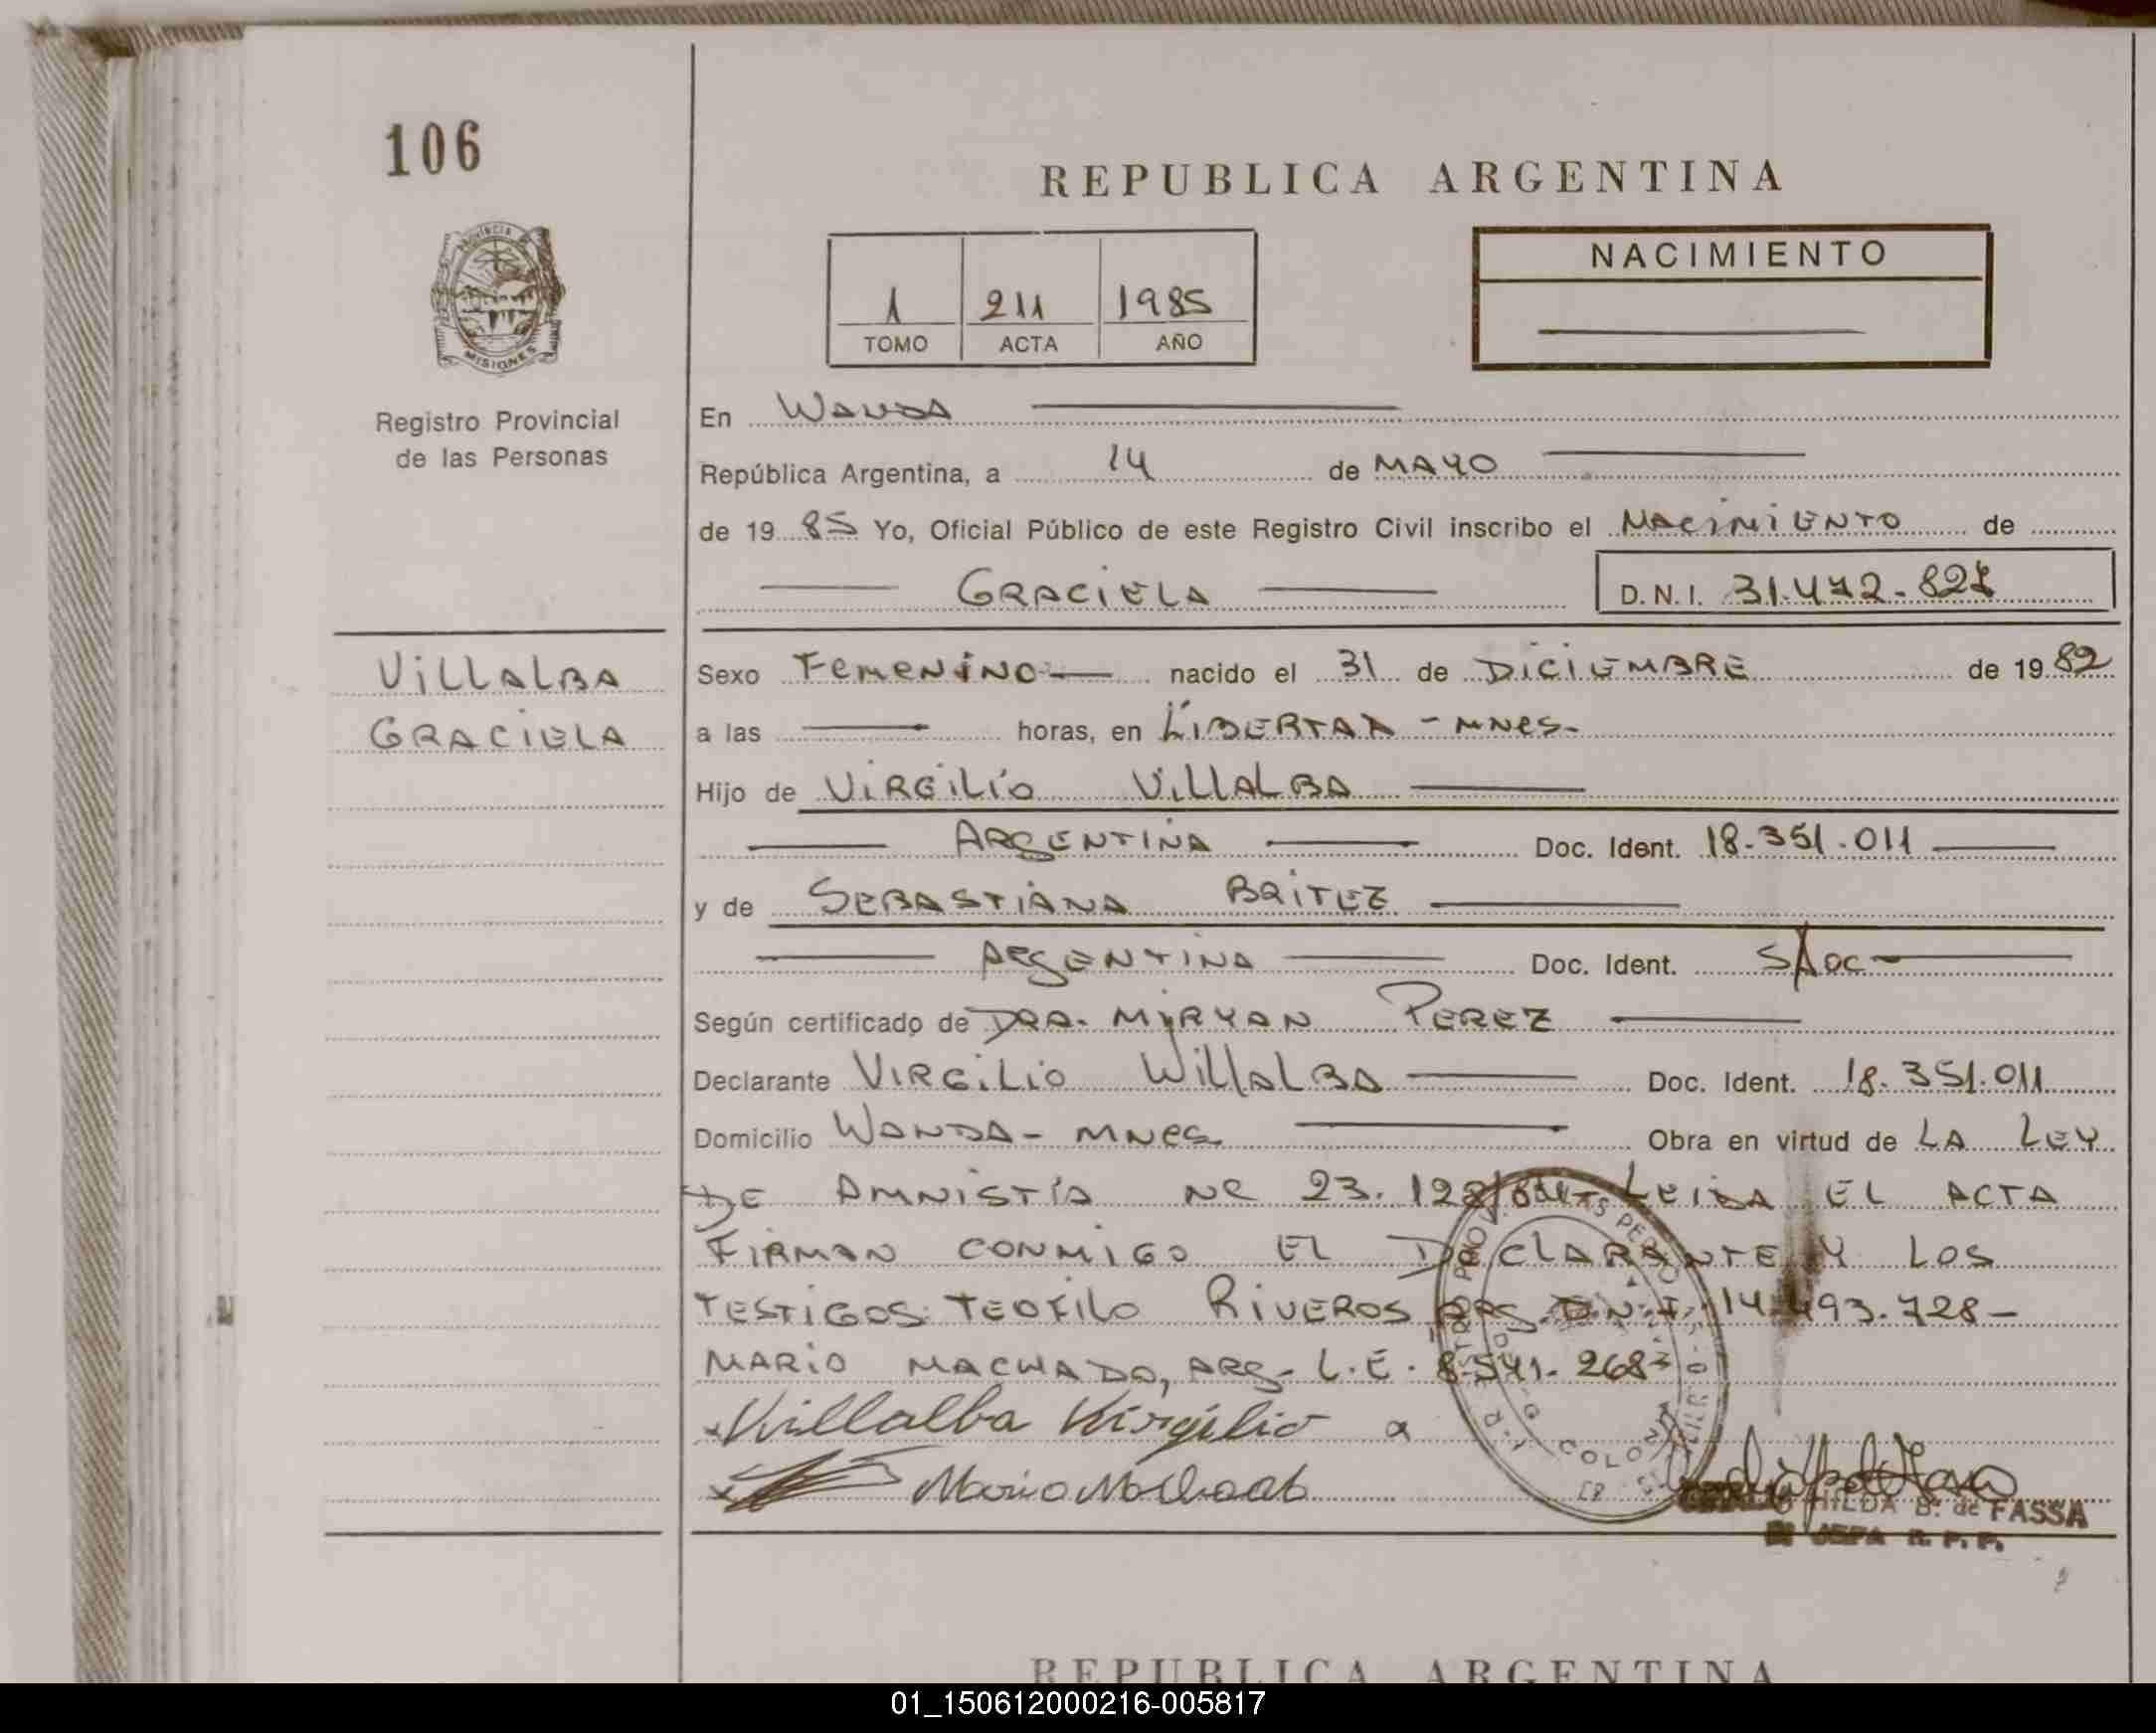 106
REPUBLICA ARGENTINA
PROVINCIA
MISIONES
Registro Provincial
de las Personas
1 211 1985
TOMO ACTA AÑO
NACIMIENTO
En WANDA
República Argentina, a 14 de MAYO
de 1985 Yo, Oficial Público de este Registro Civil inscribo el NACIMIENTO de
GRACIELA D.N.I. 31.472.827
VILLALBA
GRACIELA
Sexo FEMENINO nacido el 31 de DICIEMBRE de 1982
a las horas, en LIBERTAD - MNES.
Hijo de VIRGILIO VILLALBA
ARGENTINA Doc. Ident. 18.351.011
y de SEBASTIANA BRITEZ
ARGENTINA Doc. Ident. S/DOC
Según certificado de DRA. MYRYAN PEREZ
Declarante VIRGILIO WILLALBA Doc. Ident. 18.351.011
Domicilio WANDA - MNES Obra en virtud de LA LEY
DE AMNISTÍA Nº 23.128/84- LEIDA EL ACTA
FIRMAN CONMIGO EL DECLARANTE Y LOS
TESTIGOS: TEOFILO RIVEROS ARG. D.N.I. 14.493.728-
MARIO MACHADO, ARG. L.E. 8.541.268
Villalba Virgilio
Mario Machado
HILDA B. de FASSA
JEFA R. P. P.
REPUBLICA ARGENTINA
01_150612000216-005817